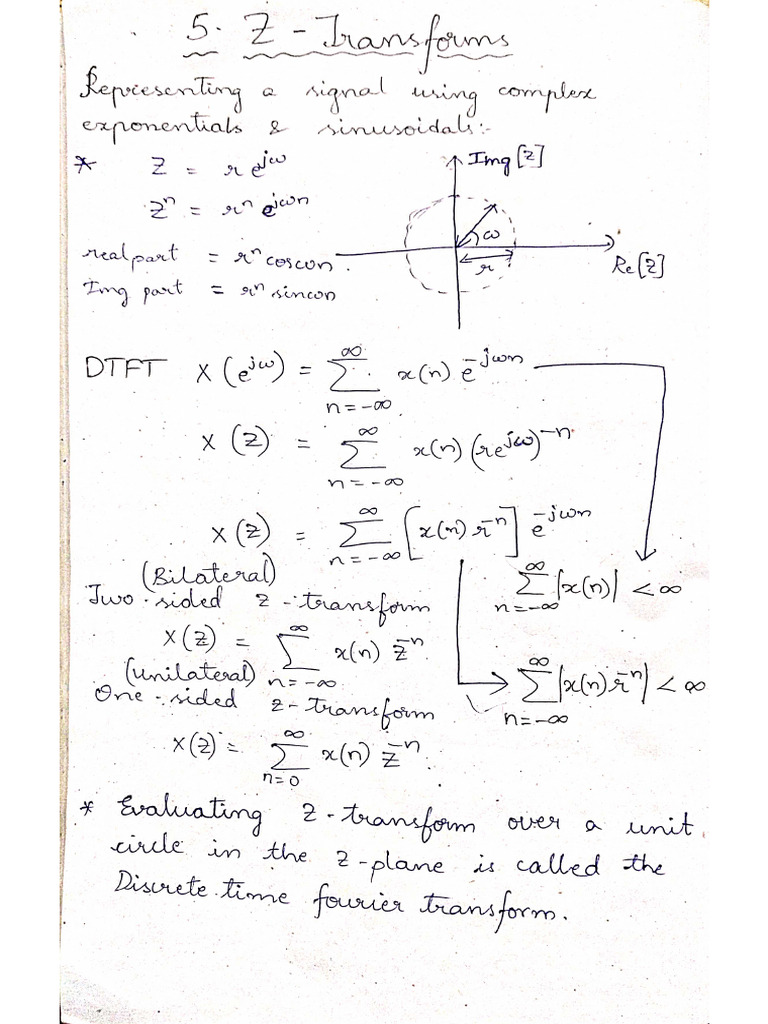 5. Z - Transforms
Representing a signal using complex
exponentials & sinusoidals:-
* Z = r e^{jω}
Z^n = r^n e^{jωn}
real part = r^n cosωn.
Img part = r^n sinωn
Img [Z]
ω
r
Re[Z]
DTFT X(e^{jω}) = ∑_{n=-∞}^{∞} x(n) e^{-jωn}
X(Z) = ∑_{n=-∞}^{∞} x(n) (re^{jω})^{-n}
X(Z) = ∑_{n=-∞}^{∞} [x(n) r^{-n}] e^{-jωn}
∑_{n=-∞}^{∞} |x(n)| < ∞
(Bilateral)
Two-sided z-transform
X(Z) = ∑_{n=-∞}^{∞} x(n) z^{-n}
∑_{n=-∞}^{∞} |x(n) r^{-n}| < ∞
(Unilateral)
One-sided z-transform
X(Z) = ∑_{n=0}^{∞} x(n) z^{-n}
* Evaluating Z-transform over a unit
circle in the z-plane is called the
Discrete-time fourier transform.